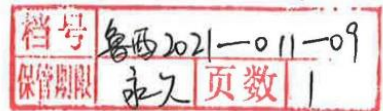 档号 鲁西2021—011—09
保管期限 永久 页数 1